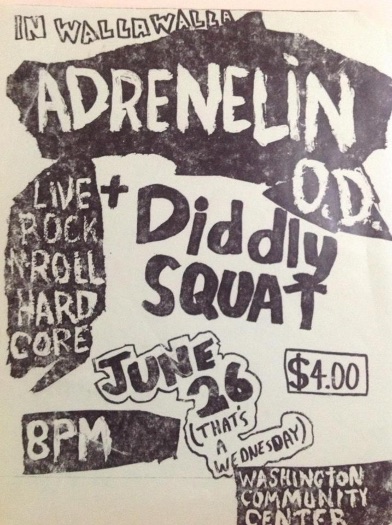 IN WALLAWALLA
ADRENELIN
O.D.
+ Diddly
SQUAT
LIVE
ROCK
N-ROLL
HARD
CORE
JUNE
26
(THAT'S
A
WEDNESDAY)
$4.00
8PM
WASHINGTON
COMMUNITY
CENTER